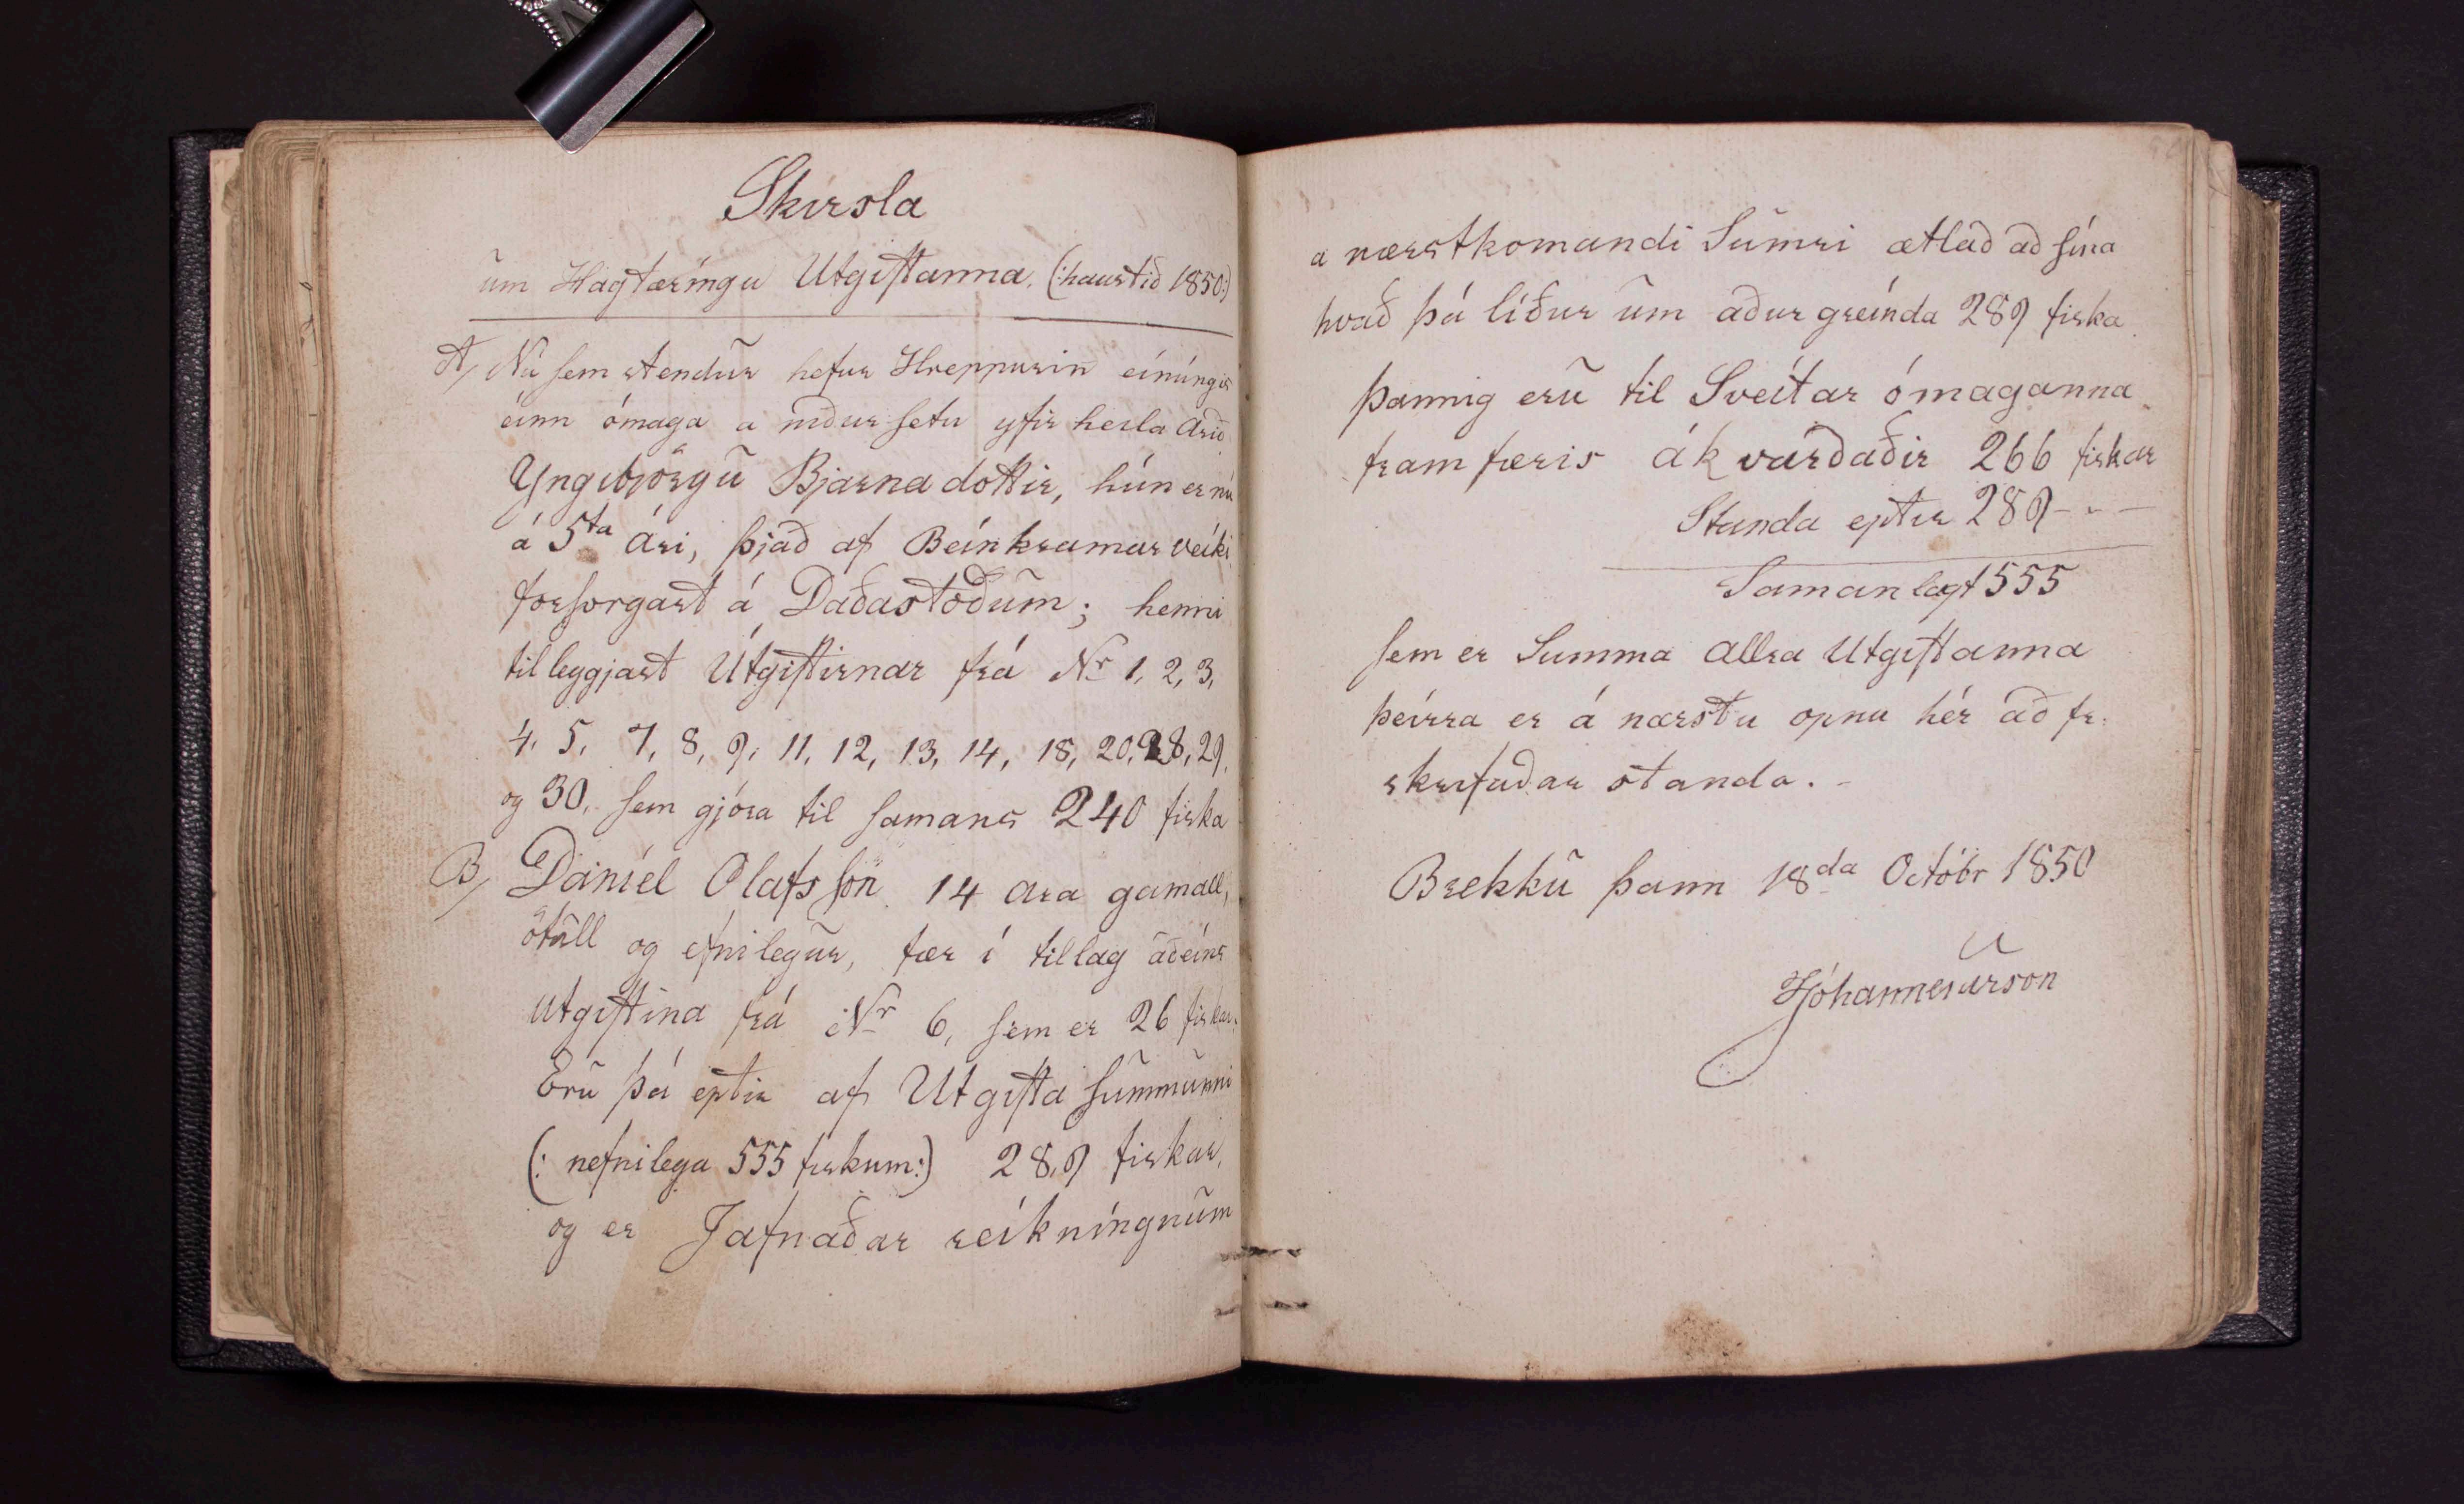 Skirsla
um Hagtæríngu Utgiftanna. (:haustið 1850:)
A, Nú sem stendur hefur Hreppurin̄ eínúngis
éinn ómaga a niðursetu yfir heila Arið
Yngibjörgu Bjarnadottir, hún er nú
á 5ta Ári, þjáð af Beínkramar veíki
forsorgast á Daðastöðum; henni
tilleggjast Útgiftirnar frá Nr 1, 2, 3,
4, 5, 7, 8, 9, 11, 12, 13, 14, 18, 20, 28, 29,
og 30, sem gjöra til samans 240 fiska
B, Daníel Olafsson 14 ara gamall,
ötull og efnilegur, fær í tillag aðeíns
utgiftina frá Nr 6, sem er 26 fiskar:
Eru þá eptir af Utgifta summunni
(: nefnilega 555 fiskum:) 289 fiskar,
og er Jafnaðar reíkníngnum
a nærstkomandi Sumri ætlað að sína
hvað þá líður um aður greínda 289 fiska
þannig eru til Sveítar ómaganna
framfæris ákvarðaðir 266 fiskar
Standa eptir 289 - " -
Samanlagt 555
sem er Summa allra Utgiftanna
þeírra er á næstu opnu hér að fr:
skrifaðar standa. -
Brekku þann 18da Octóbr 1850